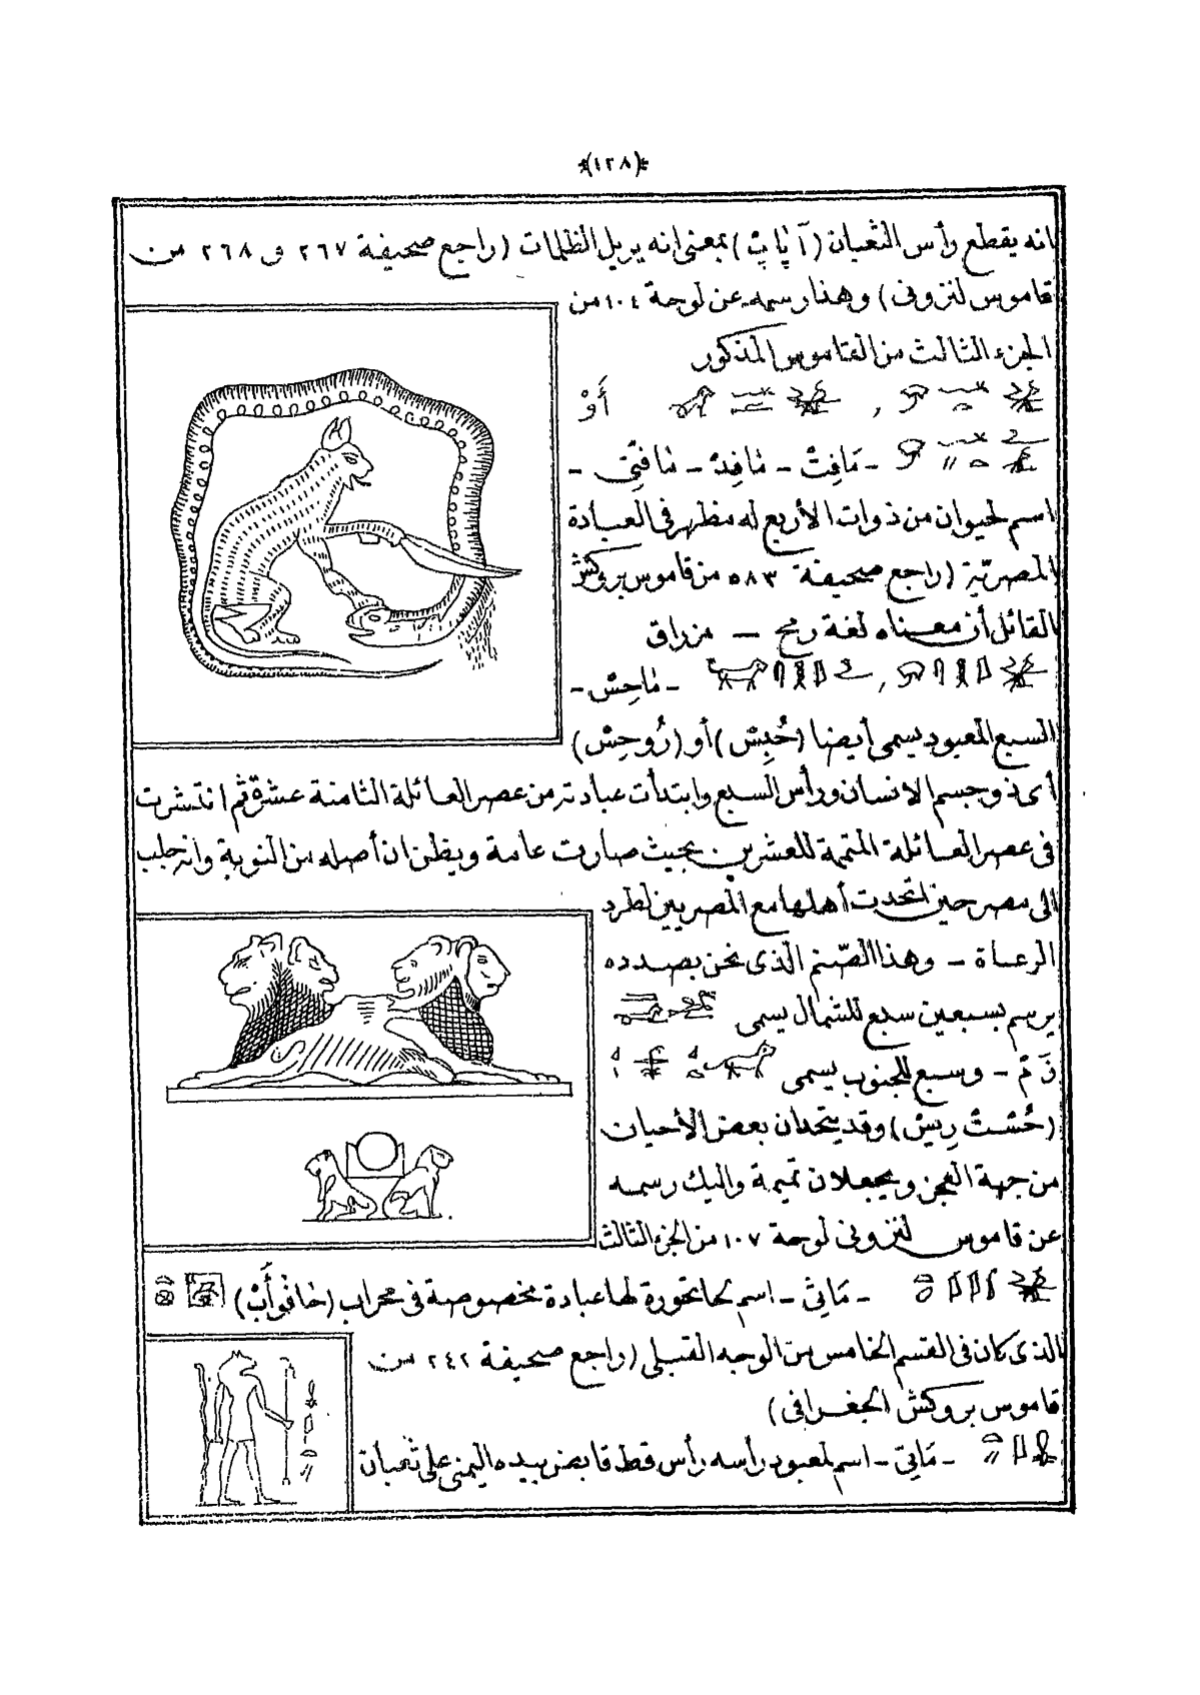 *(١٢٨)*
انه يقطع رأس الثعبان (آ پاپْ) بمعنى انه يزيل الظلمات (راجع صحيفة ٢٦٧ و ٢٦٨ من
قاموس لنزونى) وهنا رسمه عن لوحة ١٠٤ من
الجزء الثالث من القاموس المذكور
أَوْ
- مَافِتْ - مَافِدْ - مَافِتِى -
اسم لحيوان من ذوات الأربع له مظهر فى العبادة
المصريّة (راجع صحيفة ٥٨٣ من قاموس بروكش
القائل أن معناه لغة رمح - مزراق
- مَاحِسْ -
السبع المعبود يسمى أيضا (خُبِسْ) أو (رُوحِسْ)
أى ذو جسم الانسان ورأس السبع وابتدأت عبادته من عصر العائلة الثامنة عشرة ثم انتشرت
فى عصر العائلة المتممة للعشرين بحيث صارت عامة ويظن ان أصله من النوبة وانه جلب
الى مصر حين اتحدت أهلها مع المصريين لطرد
الرعاة - وهذا الصّنم الذى نحن بصدده
يرسم بسبعين سبع للشمال يسمى
زَمْ - وسبع للجنوب يسمى
(خُسْتْ رِيسْ) وقد يتحدان بعض الأحيان
من جهة العجز ويجعلان تميمة واليك رسمه
عن قاموس لنزونى لوحة ١٠٧ من الجزء الثالث
- مَاتِىْ - اسم لحاتحورة لها عبادة مخصوصة فى محراب
الذى كان فى القسم الخامس من الوجه القبلى (راجع صحيفة ٢٤٢ من
قاموس بروكش الجغرافى)
- مَاتِى - اسم لمعبود رأسه رأس قط قابض بيده اليمنى على ثعبان